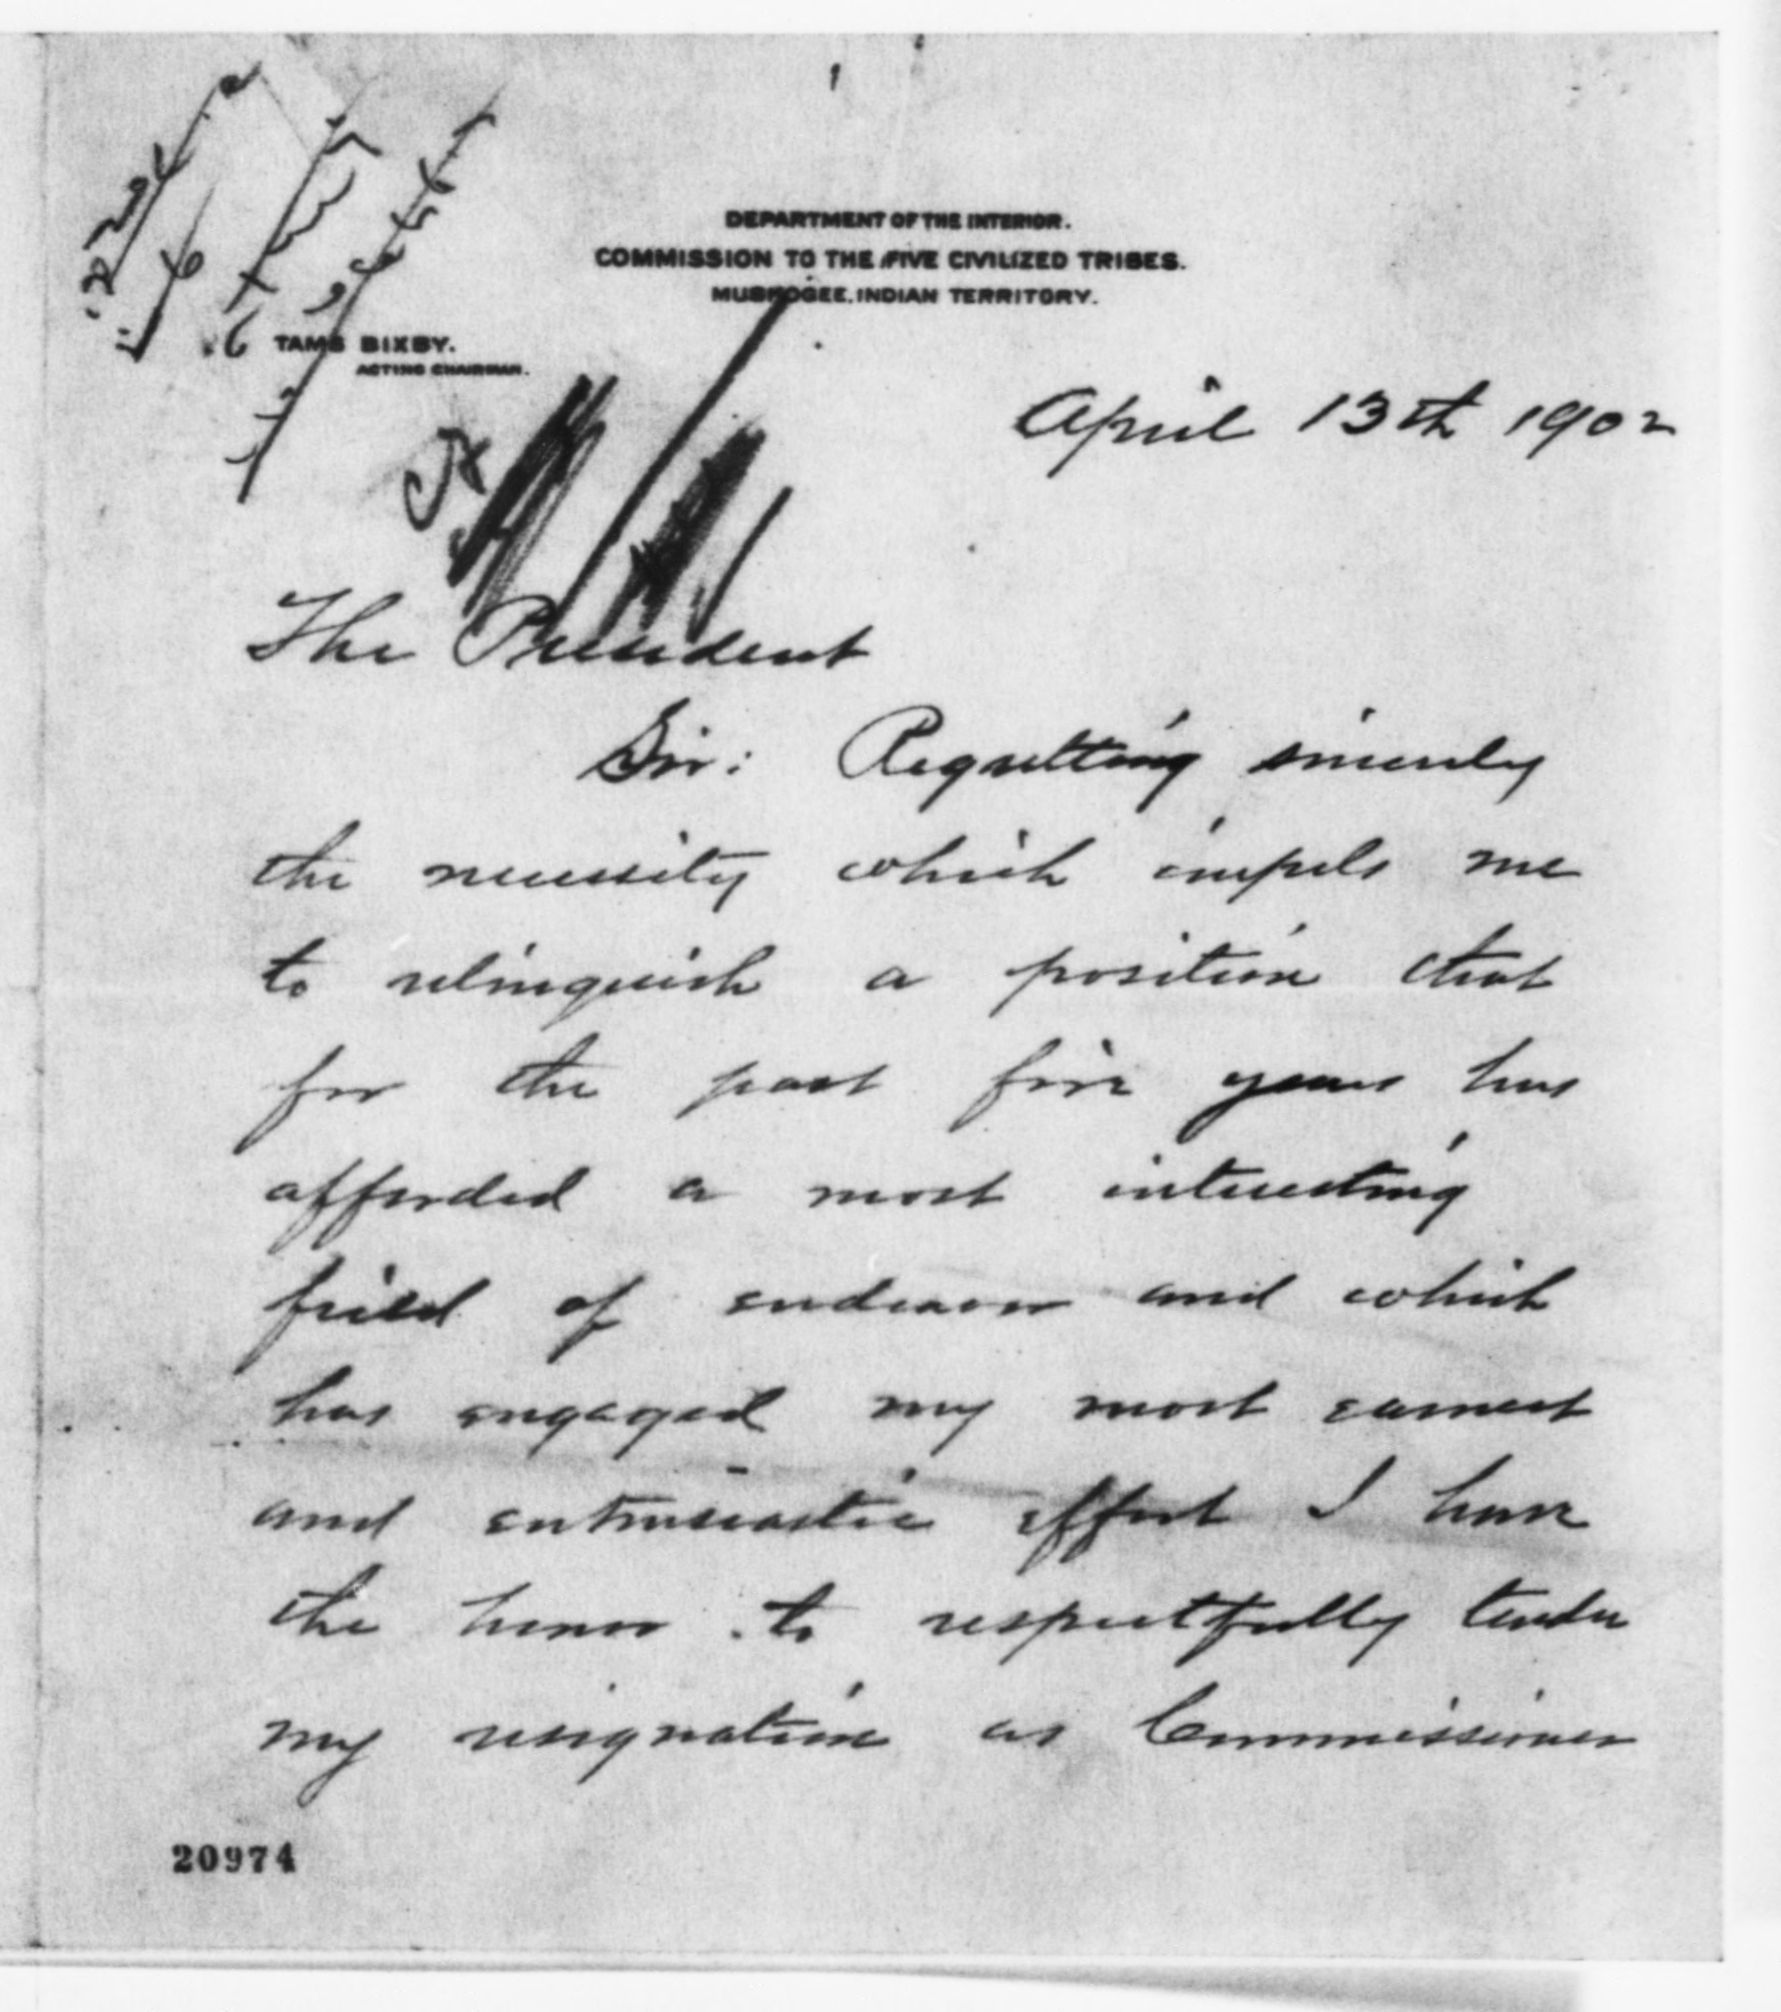 DEPARTMENT OF THE INTERIOR.
COMMISSION TO THE FIVE CIVILIZED TRIBES.
MUSKOGEE, INDIAN TERRITORY.
TAMS BIXBY.
ACTING CHAIRMAN.
April 13th 1902
The President
Sir: Regretting sincerely
the necessity which impels me
to relinquish a position that
for the past five years has
afforded a most interesting
field of endeavor and which
has engaged my most earnest
and enthusiastic effort I have
the honor to respectfully tender
my resignation as Commissioner
20974